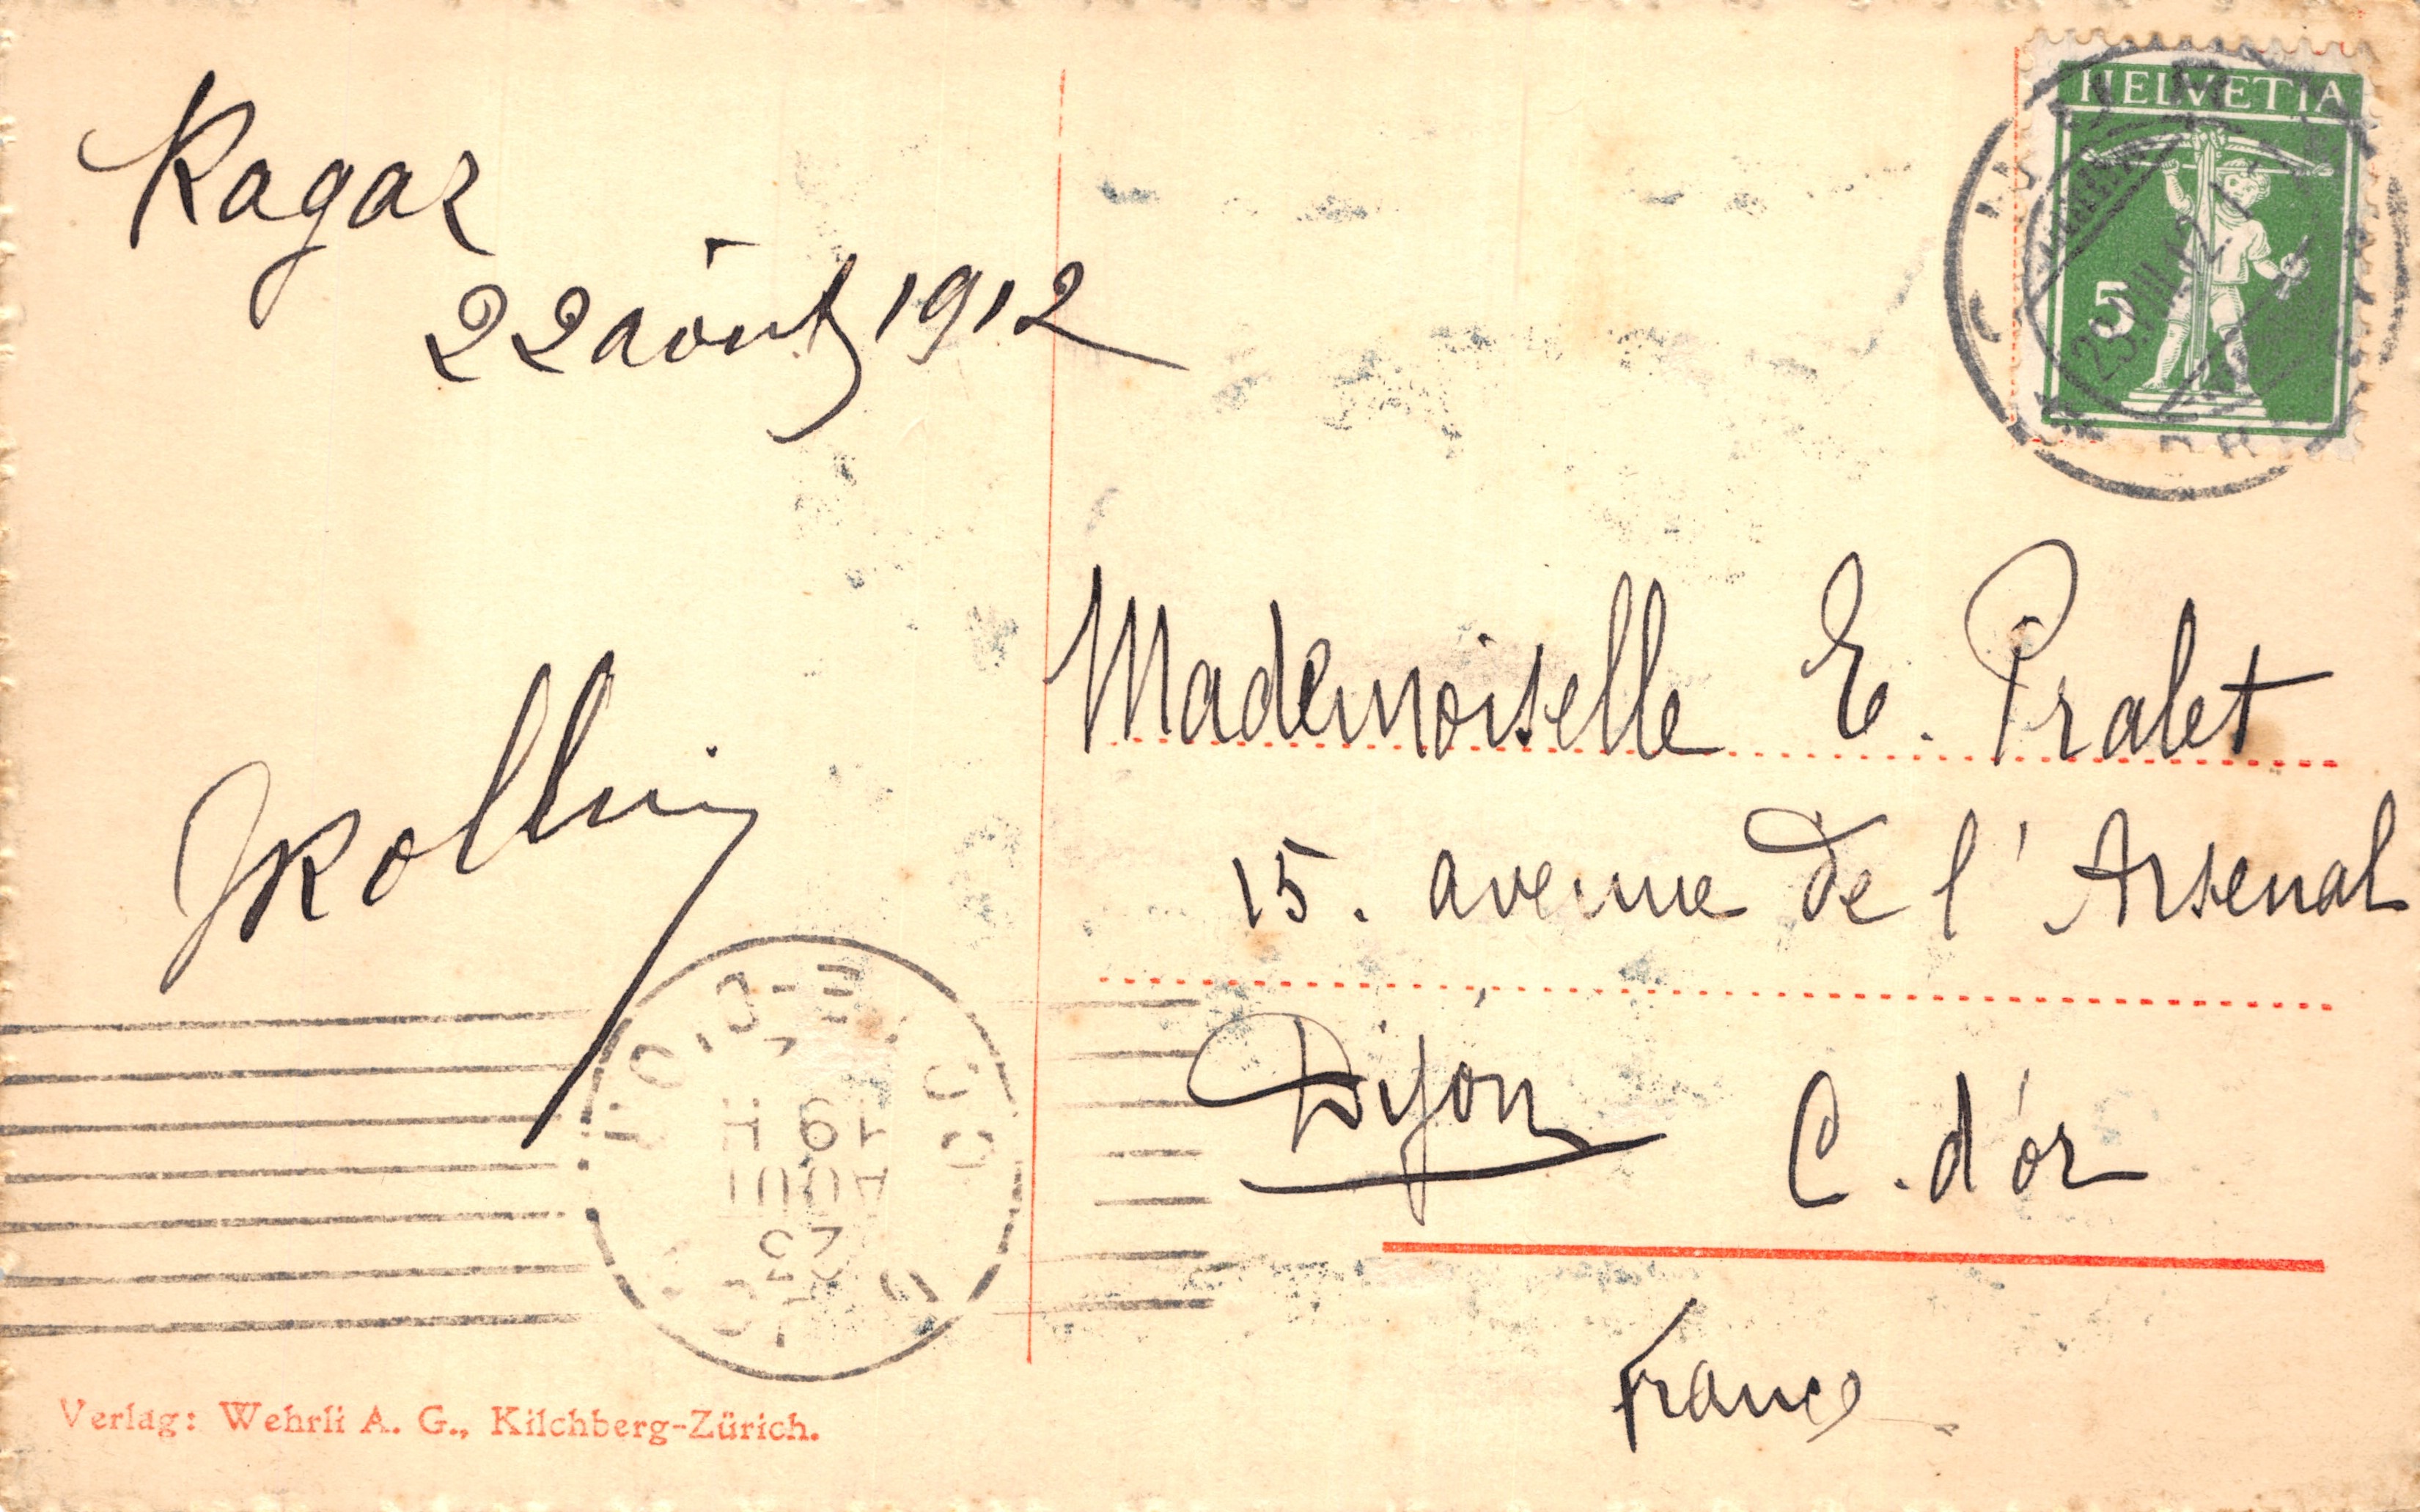 Ragaz
22 août 1912
JRollin
HELVETIA
5
23.VIII.12
Mademoiselle E. Pralet
15. avenue de l'Arsenal
Dijon C. d'or
France
19 H
AOUT
Verlag: Wehrli A. G., Kilchberg-Zürich.